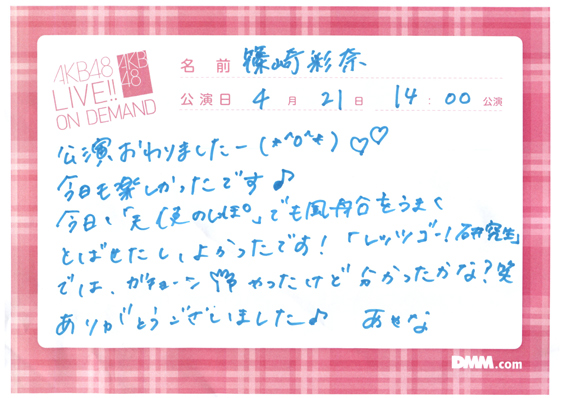 AKB48
LIVE!!
ON DEMAND
AKB
48
名 前 篠崎彩奈
公演日 4 月 21 日 14 : 00 公演
公演おわりましたー(*^o^*)♡♡
今日も楽しかったです♪
今日は「天使のしっぽ」でも風船をうまく
とばせたしよかったです!「レッツゴー!研究生」
では、ガチョーン やったけど分かったかな?笑
ありがとうございました♪ あやな
DMM.com